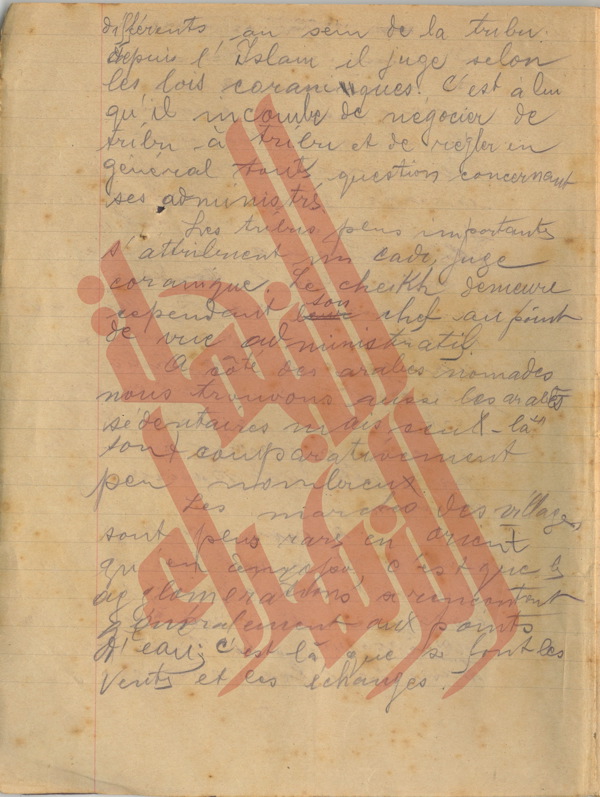 différents au sein de la tribu.
depuis l'Islam il juge selon
les lois coraniques. C'est à lui
qu'il incombe de négocier de
tribu à tribu et de régler en
général touts question concernant
ses administré
Les tribus plus importantes
s'attribuent un cadi, juge
coranique. Le cheikh demeure
cependant son chef au point
de vue administratif.
A côté des arabes nomades
nous trouvons aussi les arabes
sédentaires mais ceux-là
sont comparativement
peu nombreux.
Les marchés des villages
sont plus rares en Orient
qu'en c'est que les
agglomérations se rencontrent
généralement aux points
d'eau; c'est là que se font les
vents et les échanges.